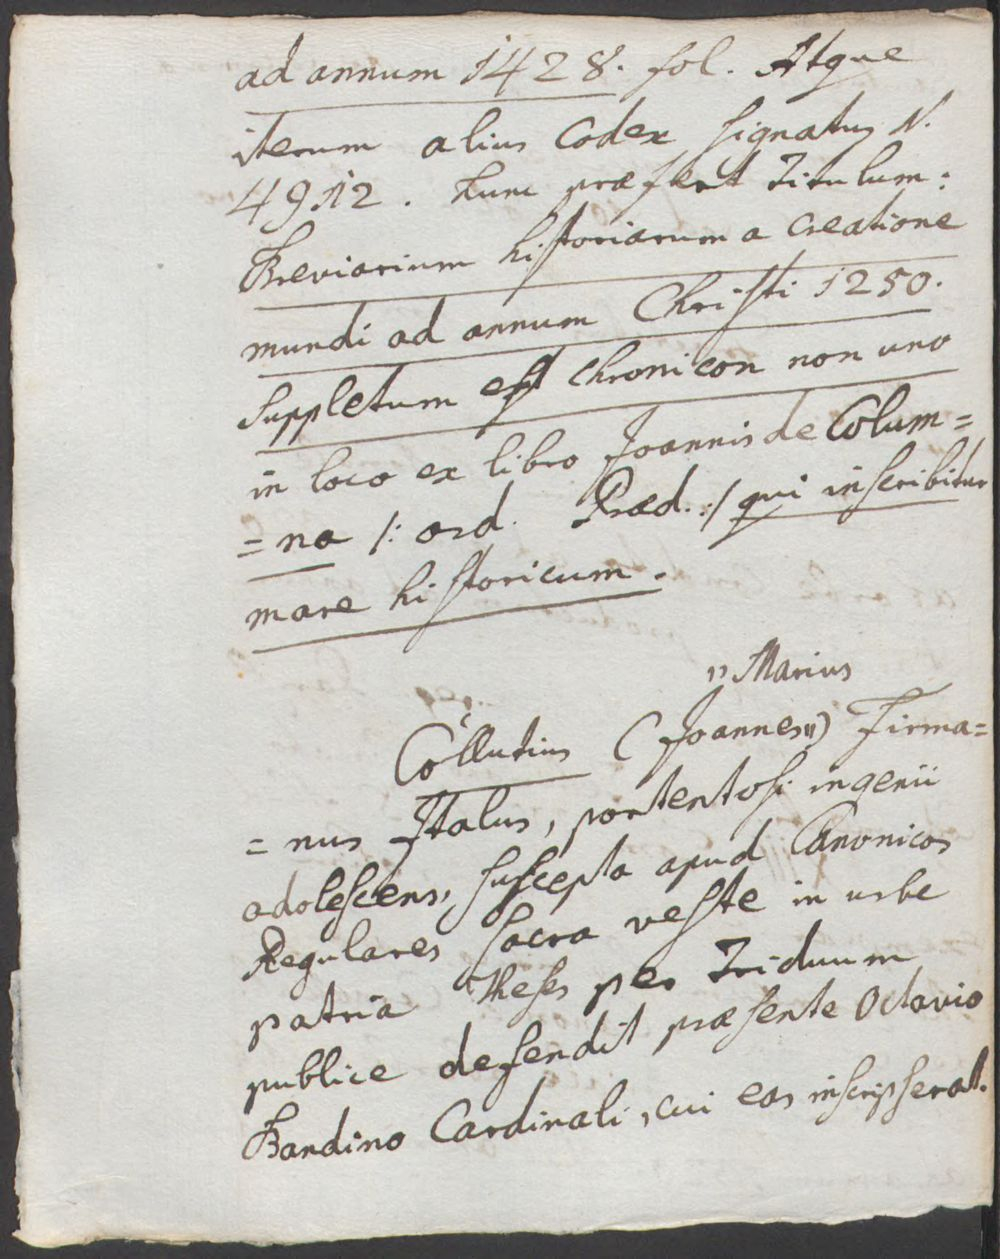 ad annum 1428. fol. Atque
iterum alius Codex signatus N.
4912. hunc præfert Titulum:
Breviarium historiarum a Creatione
mundi ad annum Christi 1250.
suppletum est Chronicon non uno
in loco ex libro Joannis de Colum=
=na /: ord. Præd. :/ qui inscribitur
mare historicum.
" Marius
Collutius (Joannes ") Firma=
=nus Italus, portentosi ingenii
adolescens, suscepta apud Canonicos
Regulares sacra veste in urbe
patria theses per Triduum
publice defendit præsente Octavio
Bandino Cardinali, cui eas inscripserat.